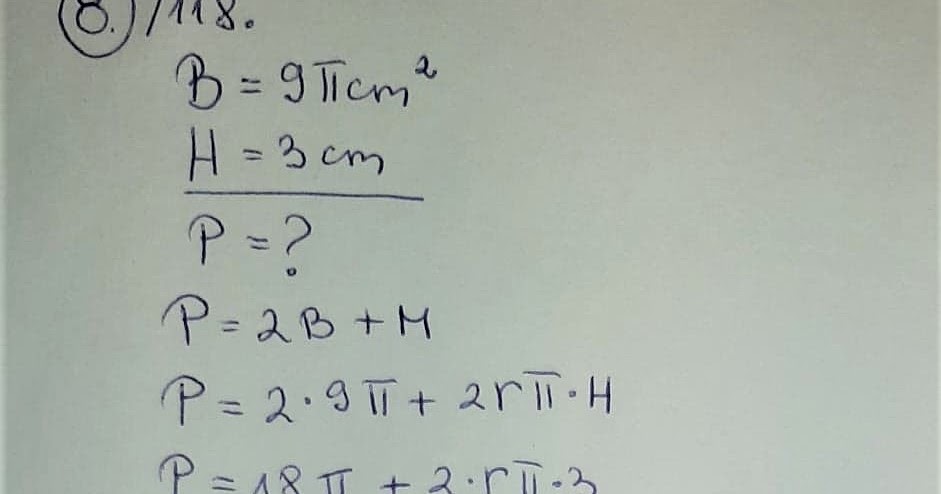 8. / 118.
B = 9π cm²
H = 3 cm
P = ?
P = 2B + M
P = 2·9π + 2rπ·H
P = 18π + 2·rπ·3